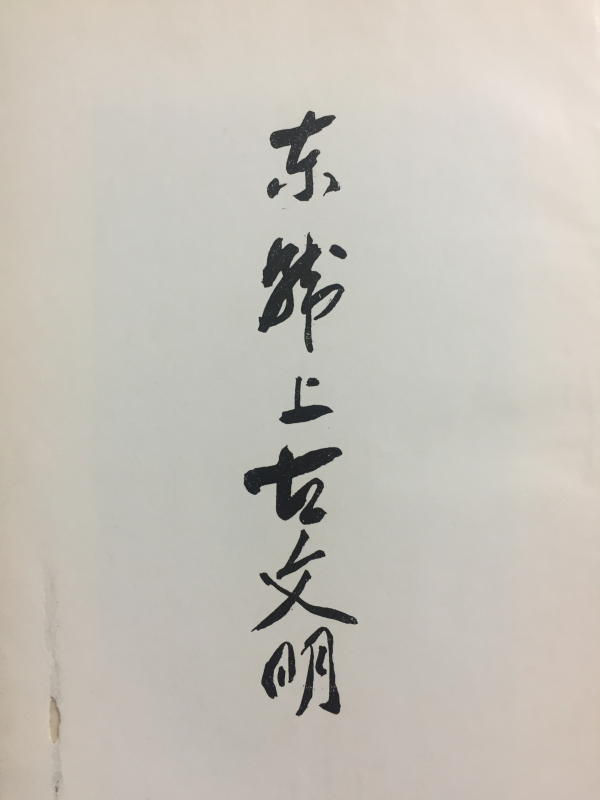 东 上古文明